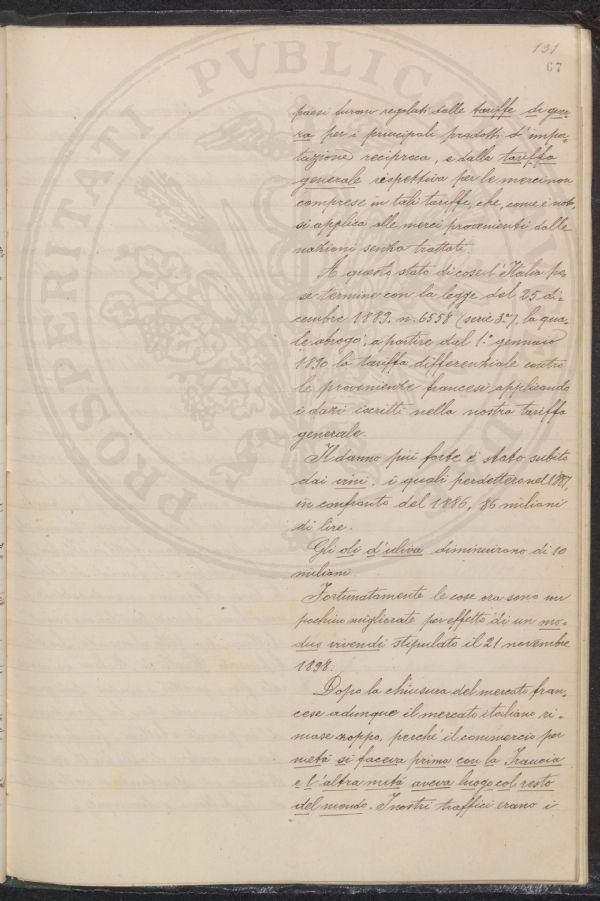 131
67
paesi furono regolati dalle tariffe di guer-
ra per i principali prodotti d'impor-
tazione reciproca, e dalla tariffa
generale rispettiva per le merci non
comprese in tali tariffe, che, come è noto,
si applica alle merci provenienti dalle
nazioni senza trattati.
A questo stato di cose l'Italia po-
se termine con la legge del 25 di-
cembre 1889. n. 6558 (serie 3.ª), la qua-
le abrogò, a partire dal 1.º gennaio
1890 la tariffa differenziale contro
le provenienze francesi, applicando
i dazi iscritti nella nostra tariffa
generale.
Il danno più forte è stato subito
dai vini. i quali perdettero nel 1887,
in confronto del 1886, 86 milioni
di lire.
Gli oli d'uliva diminuirono di 10
milioni.
Fortunatamente le cose ora sono un
pochino migliorate per effetto di un mo-
dus vivendi stipulato il 21 novembre
1898.
Dopo la chiusura del mercato fran-
cese adunque il mercato italiano ri-
mase zoppo, perché il commercio per
metà si faceva prima con la Francia
e l'altra metà aveva luogo col resto
del mondo. I nostri traffici erano i
PROSPERITATI PVBLICAE